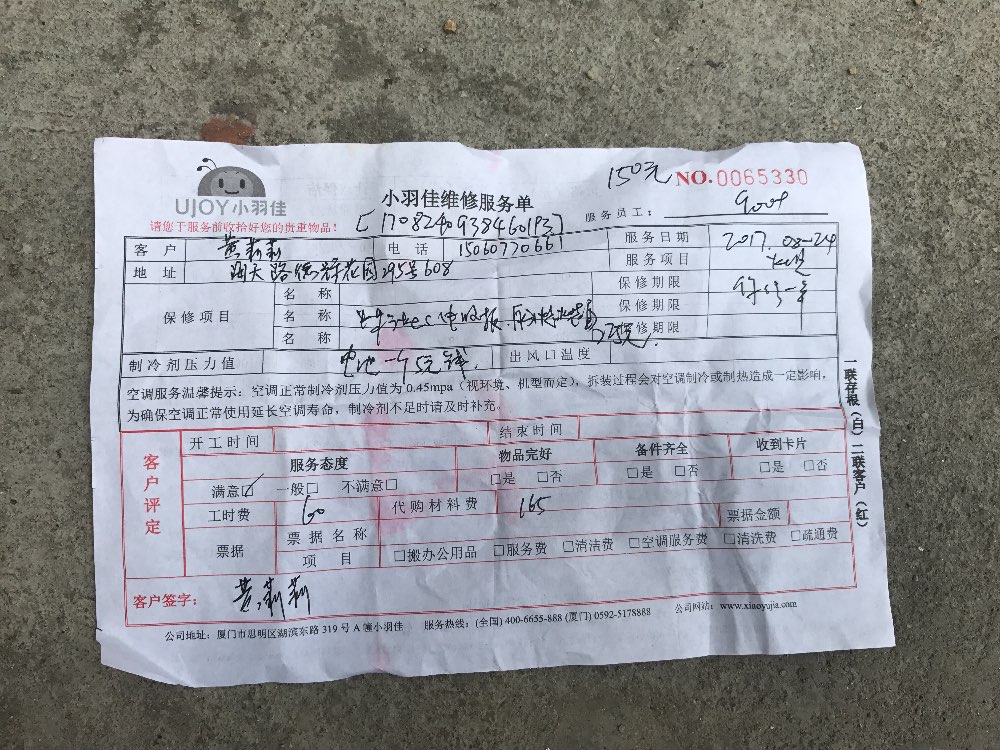 150元 NO.0065330
UJOY小羽佳 小羽佳维修服务单
请您于服务前收拾好您的贵重物品! 服务员工: 9009
客户 黄莉莉 电话 15060770661 服务日期 2017.08-24
地址 608 服务项目
保修项目 名称 保修期限 保修一年
名称 保修期限
名称 修期限
制冷剂压力值 电池一个5元钱 出风口温度
空调服务温馨提示:空调正常制冷剂压力值为0.45mpa(视环境、机型而定),拆装过程会对空调制冷或制热造成一定影响,
为确保空调正常使用延长空调寿命,制冷剂不足时请及时补充。
一联存根(白)二联客户(红)
客户评定
开工时间 结束时间
服务态度 物品完好 备件齐全 收到卡片
满意☑ 一般□ 不满意□ □是 □否 □是 □否 □是 □否
工时费 60 代购材料费 165 票据金额
票据 票据名称
项目 □搬办公用品 □服务费 □清洁费 □空调服务费 □清洗费 □疏通费
客户签字: 黄莉莉
公司地址:厦门市思明区湖滨东路319号A幢小羽佳 服务热线:(全国)400-6655-888 (厦门)0592-5178888 公司网站:www.xiaoyujia.com